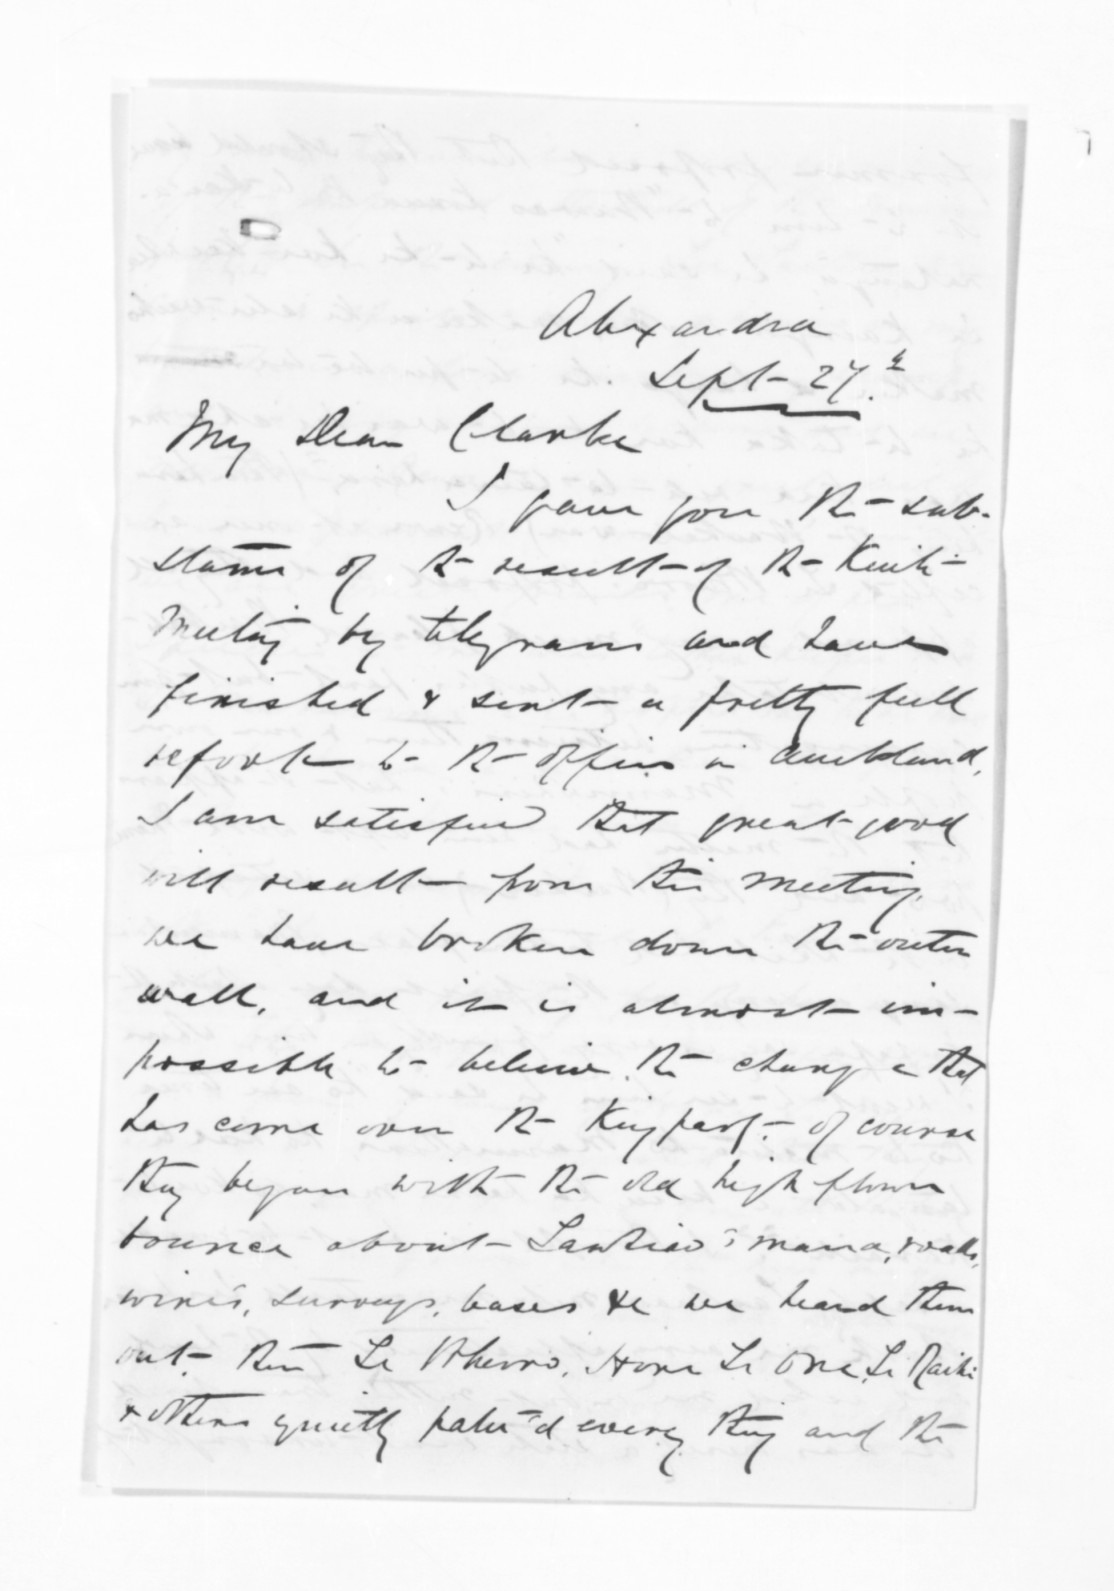 Alexandra
Sept 27th.
My Dear Clarke
I gave you the sub-
stance of the result of the Kuiti
Meeting by telegram and have
finished & sent a pretty full
report to the office in Auckland,
I am satisfied that great good
will result from this meeting.
we have broken down the outer
wall, and it is almost im-
possible to believe the change that
has come over the King party. of course
they began with the old high flown
bounce about Tawhiao's mana, roads,
wires, surveys, leases &c we heard them
out. then Te Wheoro, Hone Te One, Te Raihi
& others quietly pahu'd every thing and the